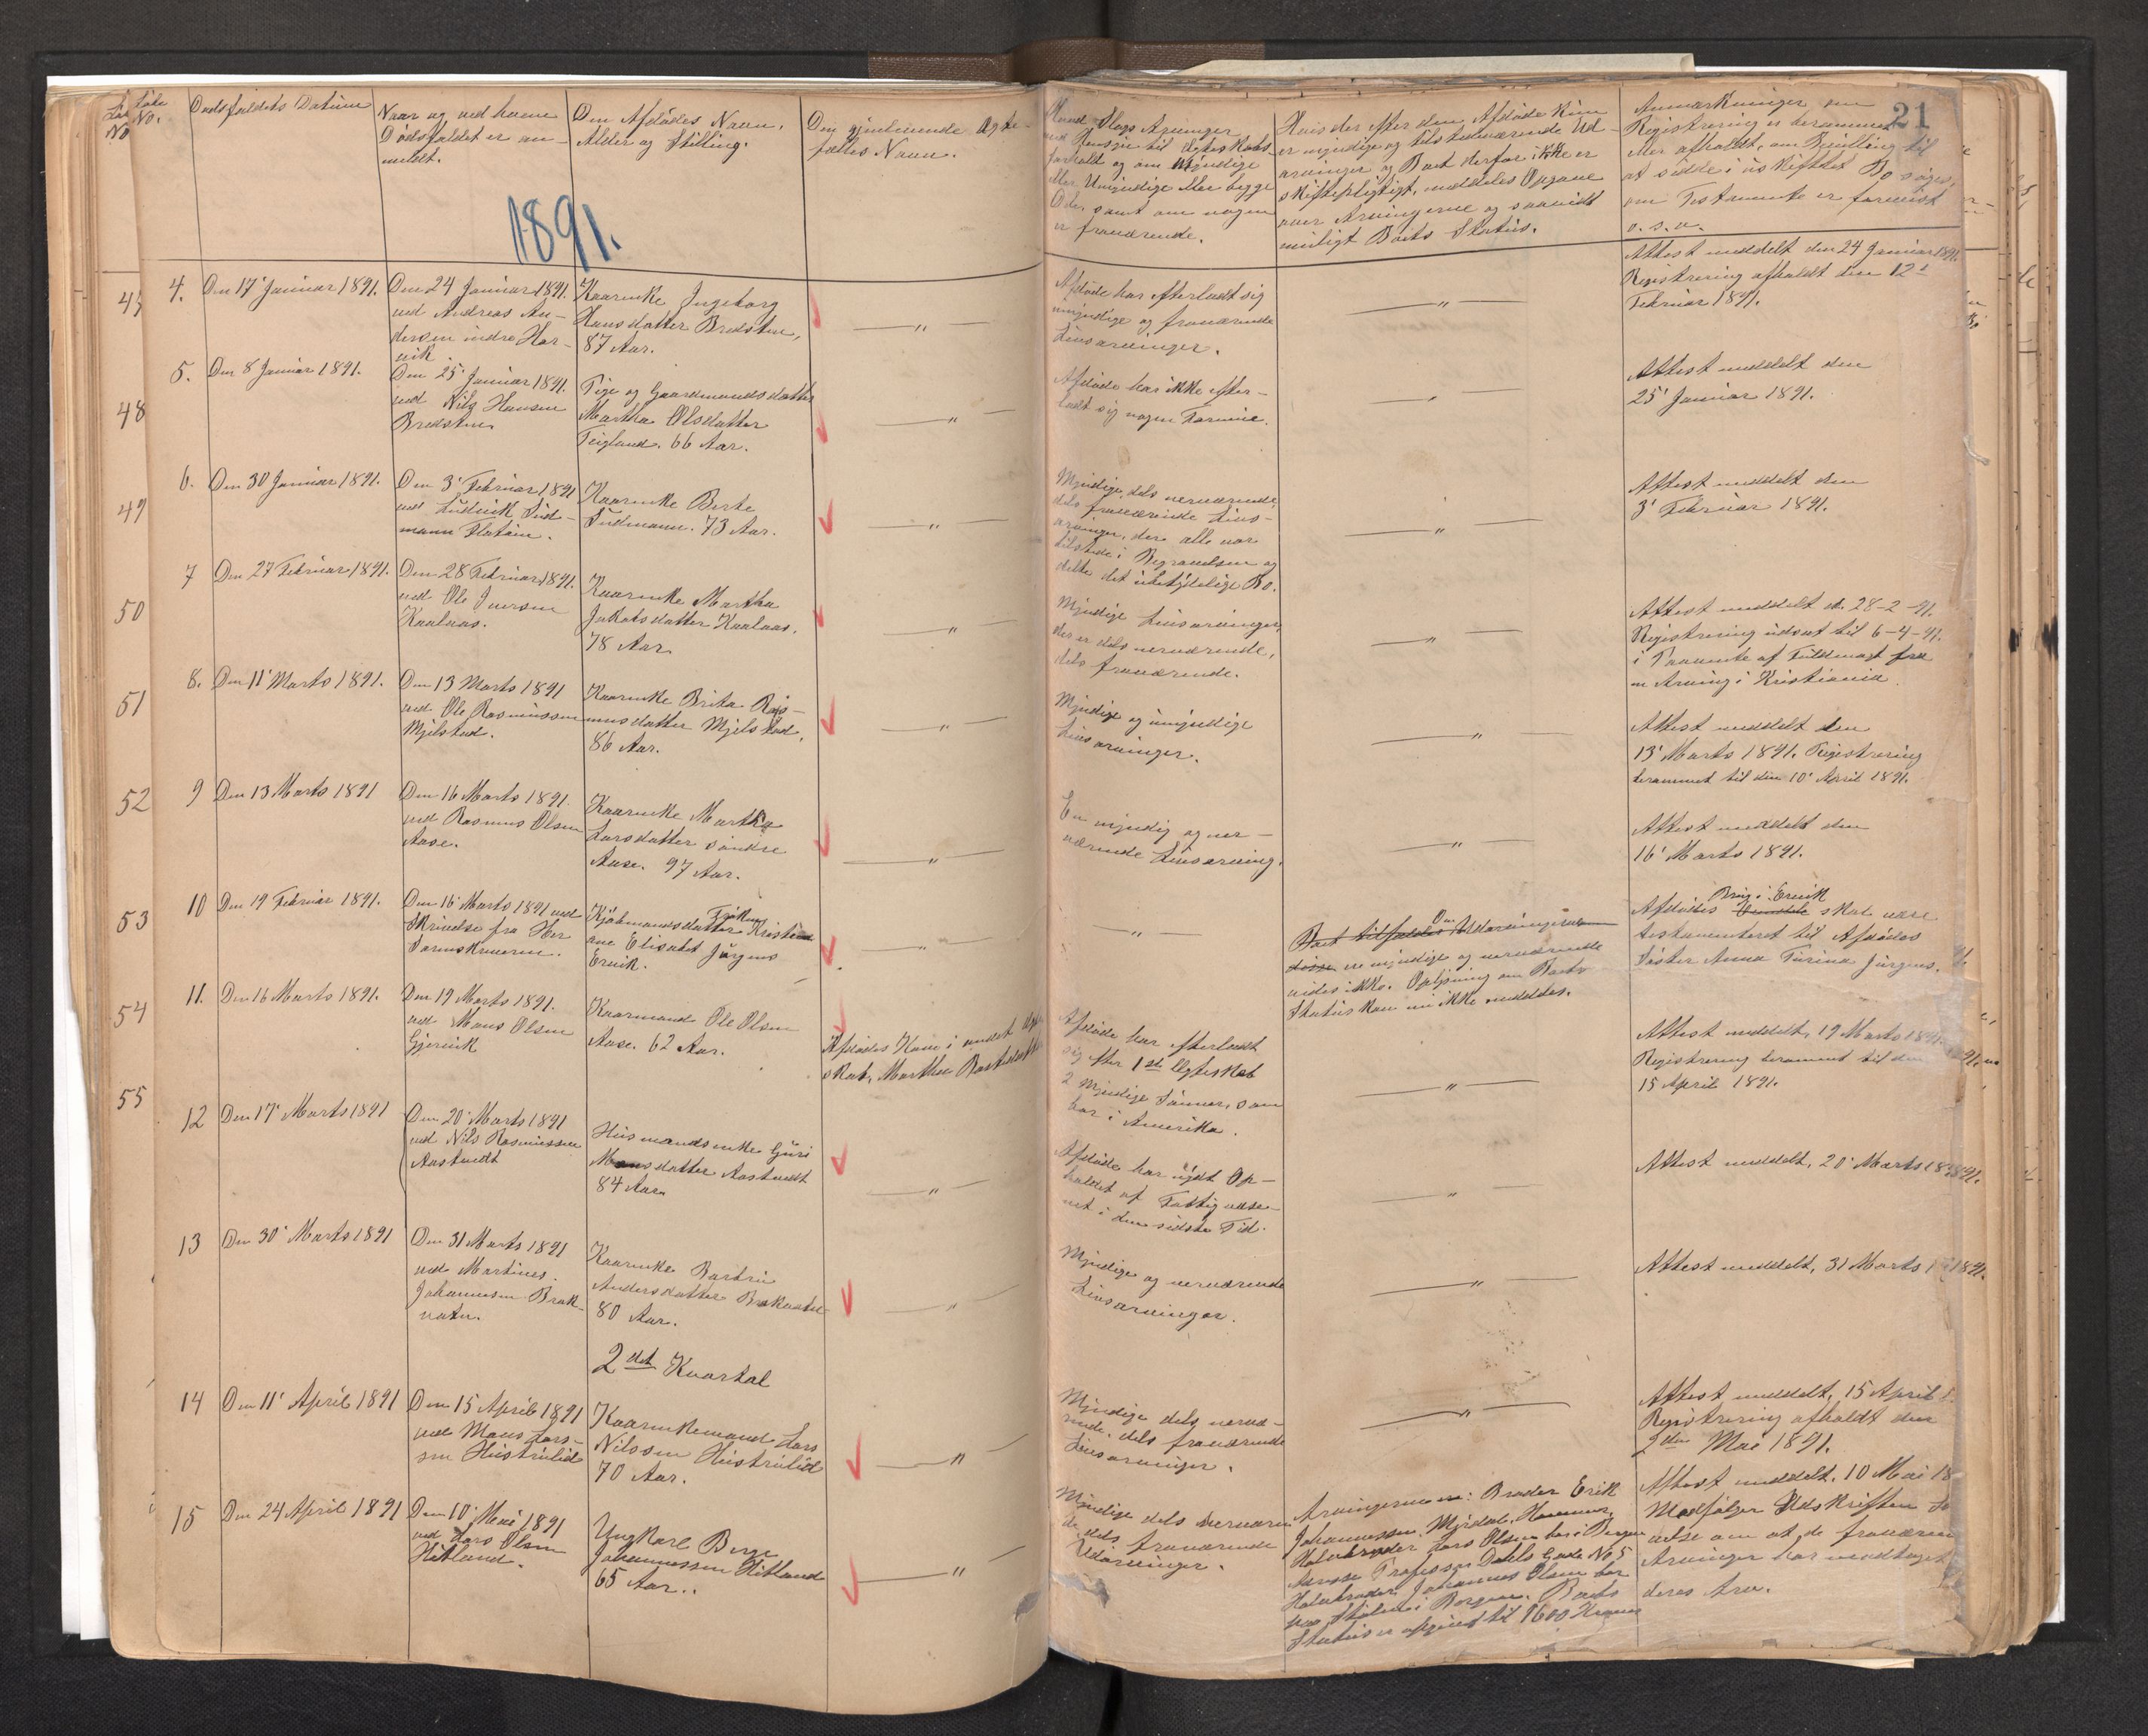 Løbe No.
Dødsfaldets Datum
Naar og ved hvem
Dødsfaldet er an-
meldt.
Den Afdødes Navn,
Alder og Stilling.
Den gjenlevende Ægte-
fælles Navn.
Hvad Slags Arvinger
med Hensyn til Slægtskabs-
forhold og om Myndige
eller Umyndige eller begge
Dele, samt om nogen
er fraværende.
Hvis der efter den Afdøde kun
er myndige og tilstedeværende Ud-
arvinger og Boet derfor ikke er
skiftepligtigt, meddeles Opgave
over Arvingerne og saavidt
muligt Boets Status.
Anmærkninger om
Registrering er berammet
eller afholdt, om Bevilling til
at sidde i uskiftet Bo søges,
om Testamente er forevist
o. s. v.
21
1891.
4. Den 17' Januar 1891.
Den 24 Januar 1891.
ved Andreas An-
dersen indre Hor-
vik.
Kaarenke Ingeborg
Hansdatter Bredsten,
87 Aar.
— " —
Afdøde har efterladt sig
myndige og fraværende
Livsarvinger.
— " —
Attest meddelt den 24 Januar 1891.
Registrering afholdt den 12'
Februar 1891.
48
5. Den 8 Januar 1891.
Den 25' Januar 1891.
ved Nils Hansen
Bredsten
Pige og Gaardmandsdatter
Martha Olsdatter
Teigland. 66 Aar.
— " —
Afdøde har ikke efter-
ladt sig nogen Formue.
— " —
Attest meddelt den
25' Januar 1891.
49
6. Den 30 Januar 1891.
Den 3' Februar 1891
ved Ludvik Sud-
mann Flatøen.
Kaarenke Berte
Sudmann. 73 Aar.
— " —
Myndige, dels nærværende,
dels fraværende Livs-
arvinger, der alle var
tilstede i Begravelsen og
delte det ubetydelige Bo.
— " —
Attest meddelt den
3' Februar 1891.
50
7 Den 27 Februar 1891.
Den 28 Februar 1891.
ved Ole Iversen
Kaalaas.
Kaarenke Martha
Jakobsdatter Kaalaas.
78 Aar
— " —
Myndige Livsarvinger,
der er dels nærværende,
dels fraværende.
— " —
Attest meddelt d. 28-2-91.
Registrering udsat til 6-4-91.
i Paavente af Fuldmagt fra
en Arving i Kristiania.
51
8. Den 11' Marts 1891.
Den 13 Marts 1891
ved Ole Rasmussen
Mjelstad.
Kaarenke Brita Ras-
musdatter Mjelstad.
86 Aar.
— " —
Myndige og umyndige
Livsarvinger.
— " —
Attest meddelt den
13' Marts 1891. Registrering
berammet til den 10' April 1891.
52
9 Den 13 Marts 1891
Den 16 Marts 1891.
ved Rasmus Olsen
Aase.
Kaarenke Martha
Larsdatter søndre
Aase. 97 Aar.
— " —
En myndig og nær-
værende Livsarving.
— " —
Attest meddelt den
16' Marts 1891.
53
10 Den 19 Februar 1891.
Den 16' Marts 1891 ved
Skrivelse fra Hr
Sorenskriveren.
Frøken
Kjøbmandsdatter Kristi
ane Elisabet Jürgens
Ervik.
— " —
— " —
Boet tilfalder Om Udarvingerne
disse er myndige og nærværende
vides ikke. Oplysning om Boets
Status kan nu ikke meddeles.
Brug i Ervik
Afdødes skal være
testamenteret til Afdødes
Søster Anna Turina Jürgens.
54
11. Den 16 Marts 1891.
Den 19 Marts 1891.
ved Mons Olsen
Gjervik
Kaarmand Ole Olsen
Aase. 62 Aar.
Afdødes Kone i andet Ægte
skab, Martha Bastesdatter
Afdøde har efterladt
sig efter 1ste Ægteskab
2 myndige Sønner, som
bor i Amerika.
— " —
Attest meddelt, 19 Marts 1891.
Registrering berammet til den
15 April 1891.
55
12 Den 17' Marts 1891
Den 20' Marts 1891
ved Nils Rasmussen
Aastvedt
Husmandsenke Guri
Monsdatter Aastvedt
84 Aar
— " —
Afdøde har nydt Op-
holdet af Fattigvæse-
net i den sidste Tid.
— " —
Attest meddelt, 20' Marts 1891.
13 Den 30' Marts 1891
Den 31 Marts 1891
ved Martines
Johannesen Bruk-
naten.
Kaarenke Bastrin
Andersdatter
80 Aar.
— " —
Myndige og nærværende
Livsarvinger.
— " —
Attest meddelt, 31 Marts 1891.
2det Kvartal
14 Den 11' April 1891
Den 15 April 1891
ved Mons Lars-
sen Hustrulid
Kaarenkemand Lars
Nilssen Hustrulid
70 Aar.
— " —
Myndige dels nærvæ-
rende, dels fraværende
Livsarvinger.
— " —
Attest meddelt, 15 April
Registrering afholdt den
2den Mai 1891.
15 Den 24 April 1891
Den 10' Mai 1891
ved Lars Olsen
Hitland.
Ungkarl Berge
Johannessen Hitland
65 Aar.
— " —
Myndige dels nærværen
de, dels fraværende
Udarvinger.
Arvingerne er: Broder Erik
Johannessen, Mjrdal, Hammer,
Halvbroder Lars Olsen bor i Bergen
Adresse Professor Dahls Gade No 5
Halvbroder Johannes Olsen bor
paa Stølen i Bergen. Boets
Status er opgivet til 1600 Kroner
Attest meddelt, 10 Mai 18
Medfølger Udskriften
velse om at de fraværen
Arvinger har modtaget
deres Arv.